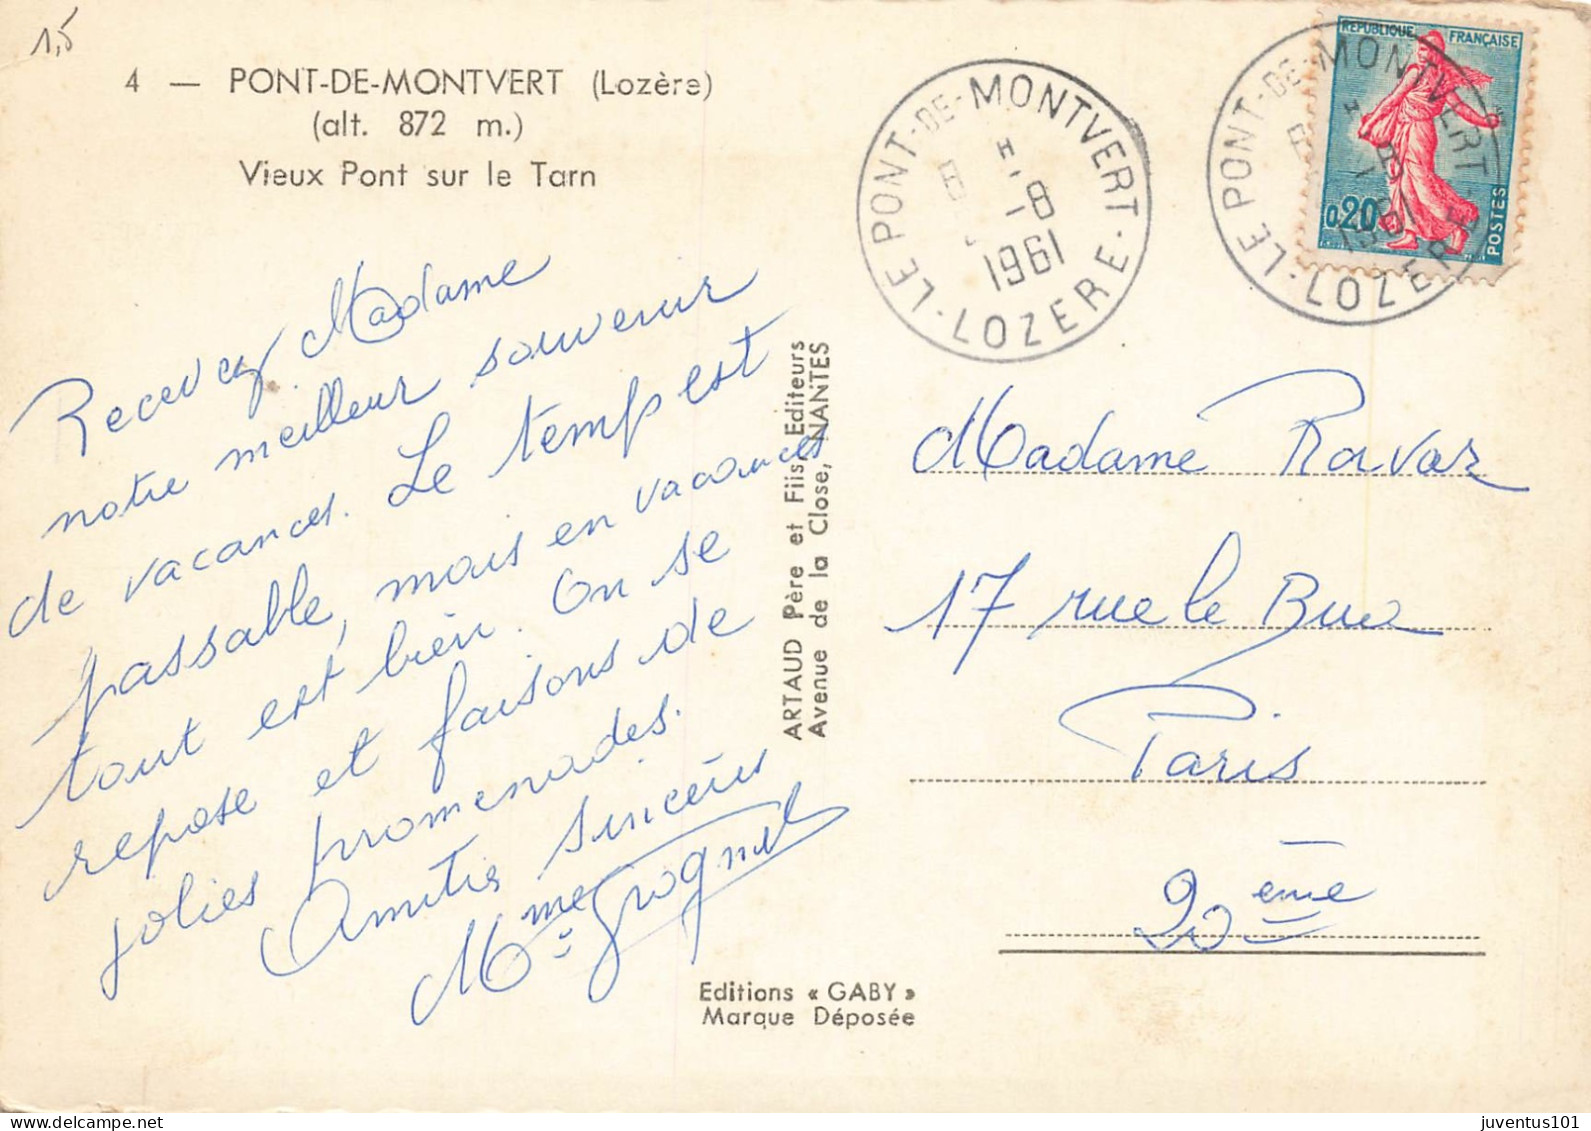 1,5
4 — PONT-DE-MONTVERT (Lozère)
(alt. 872 m.)
Vieux Pont sur le Tarn
Recevez Madame
notre meilleur souvenir
de vacances. Le temps est
passable, mais en vacances
tout est bien. On se
repose et faisons de
jolies promenades.
Amitiés sincères
Mme Grognet
ARTAUD Père et Fils, Editeurs
Avenue de la Close, NANTES
Editions « GABY »
Marque Déposée
LE PONT-DE-MONTVERT
-8
1961
- LOZERE -
LE PONT-DE-MONTVERT
1961
- LOZERE -
REPUBLIQUE FRANÇAISE
0,20
POSTES
Madame Ravaz
17 rue le Bua
Paris
20ème
juventus101